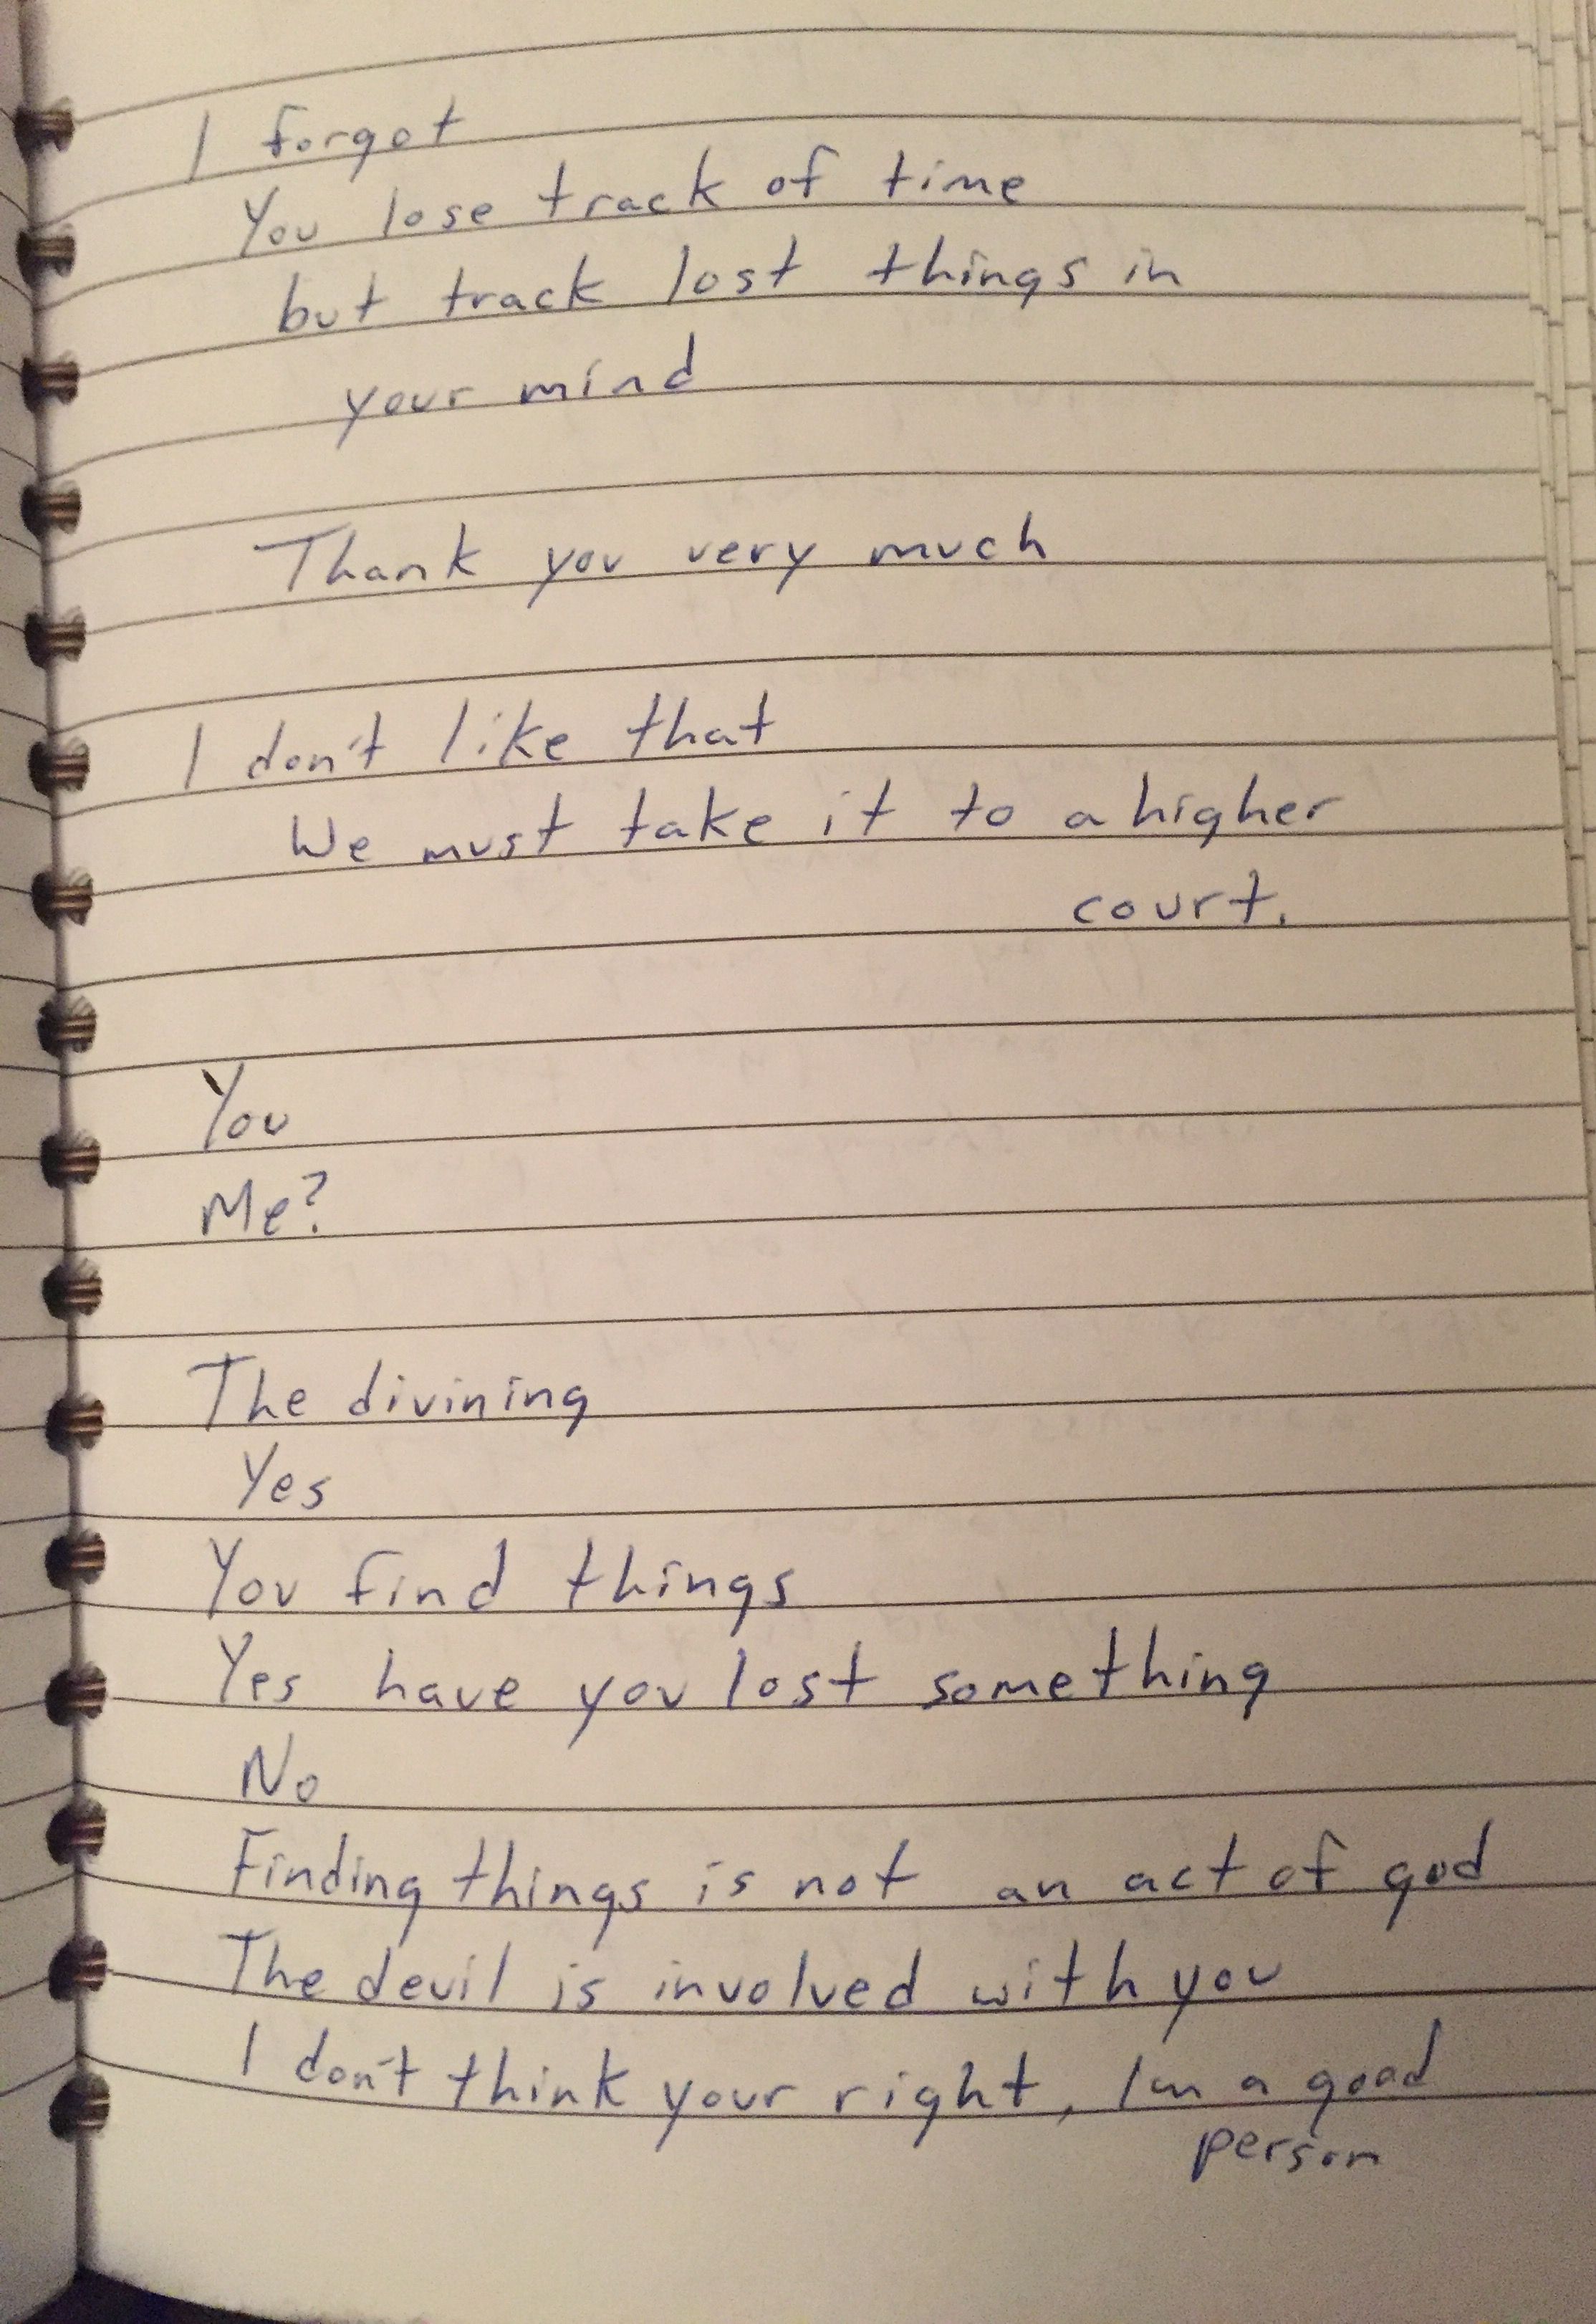 I forgot
You lose track of time
but track lost things in
your mind
Thank you very much
I don't like that
We must take it to a higher
court.
You
Me?
The divining
Yes
You find things
Yes have you lost something
No
Finding things is not an act of god
The devil is involved with you
I don't think your right, I'm a good
person